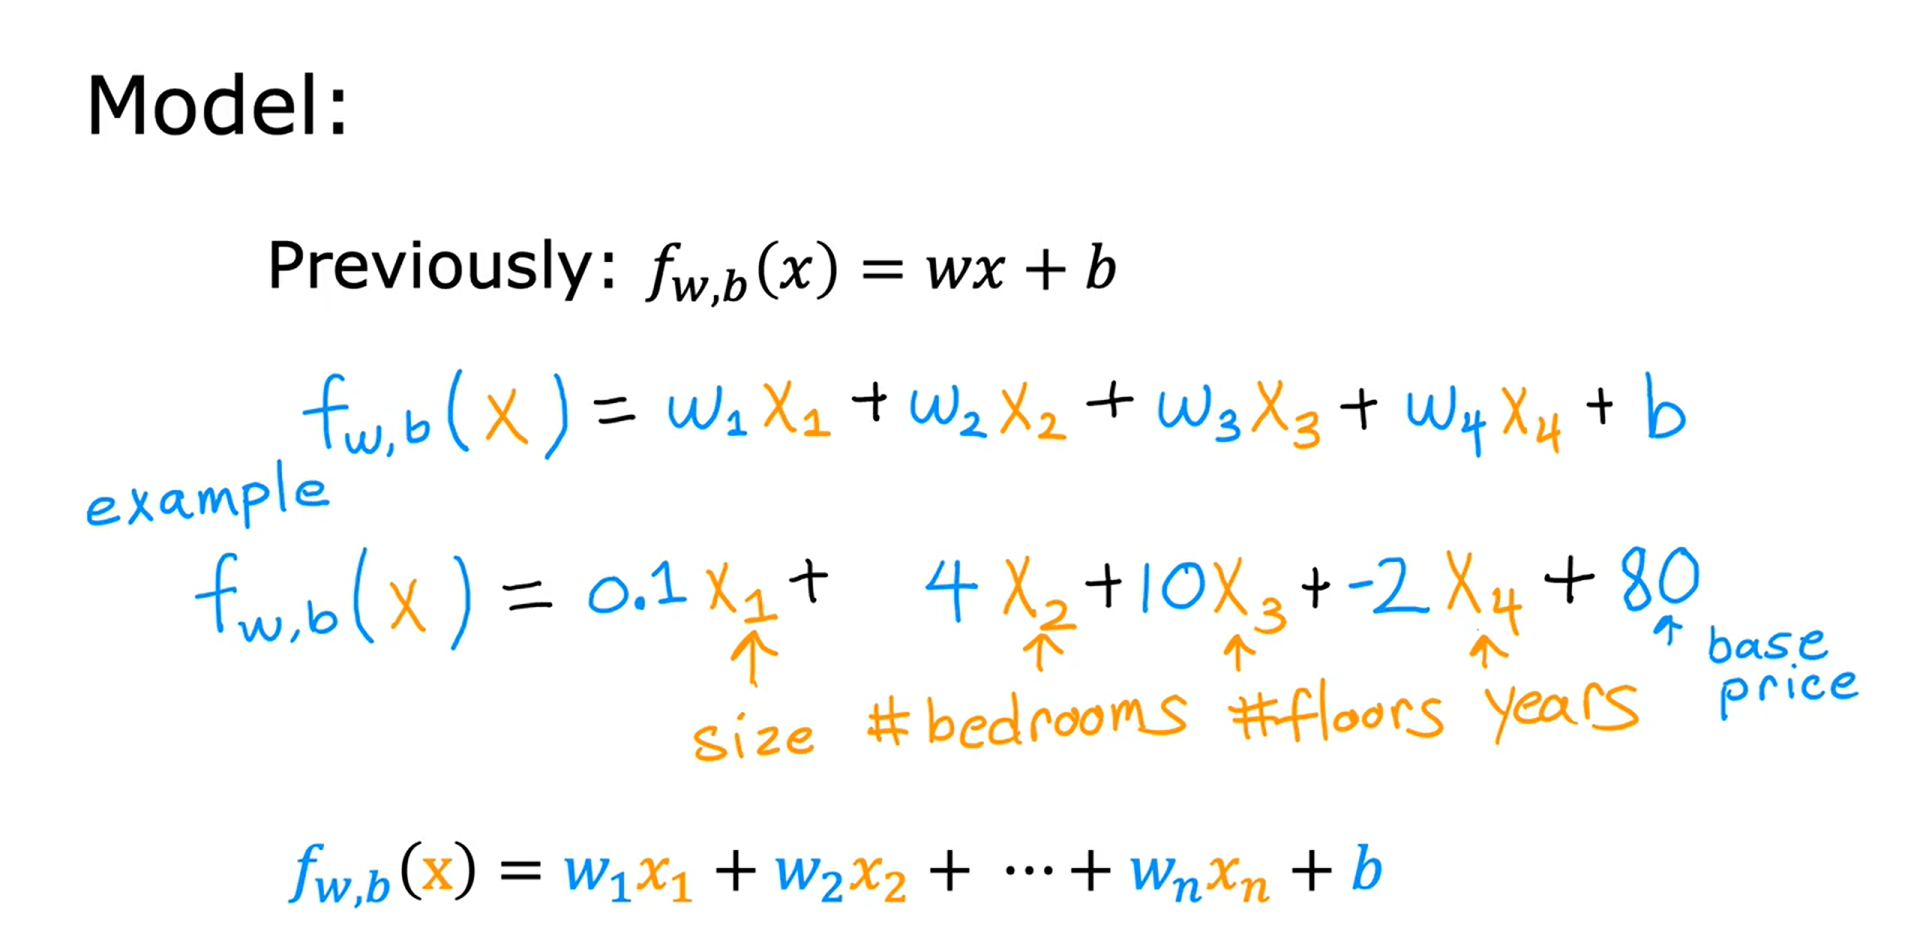 Model:
Previously: f_w,b(x) = wx + b
f_w,b(x) = w₁x₁ + w₂x₂ + w₃x₃ + w₄x₄ + b
example
f_w,b(x) = 0.1x₁ + 4x₂ + 10x₃ + -2x₄ + 80
↑ ↑ ↑ ↑ ↑
size #bedrooms #floors years base price
f_w,b(x) = w₁x₁ + w₂x₂ + ⋯ + wₙxₙ + b